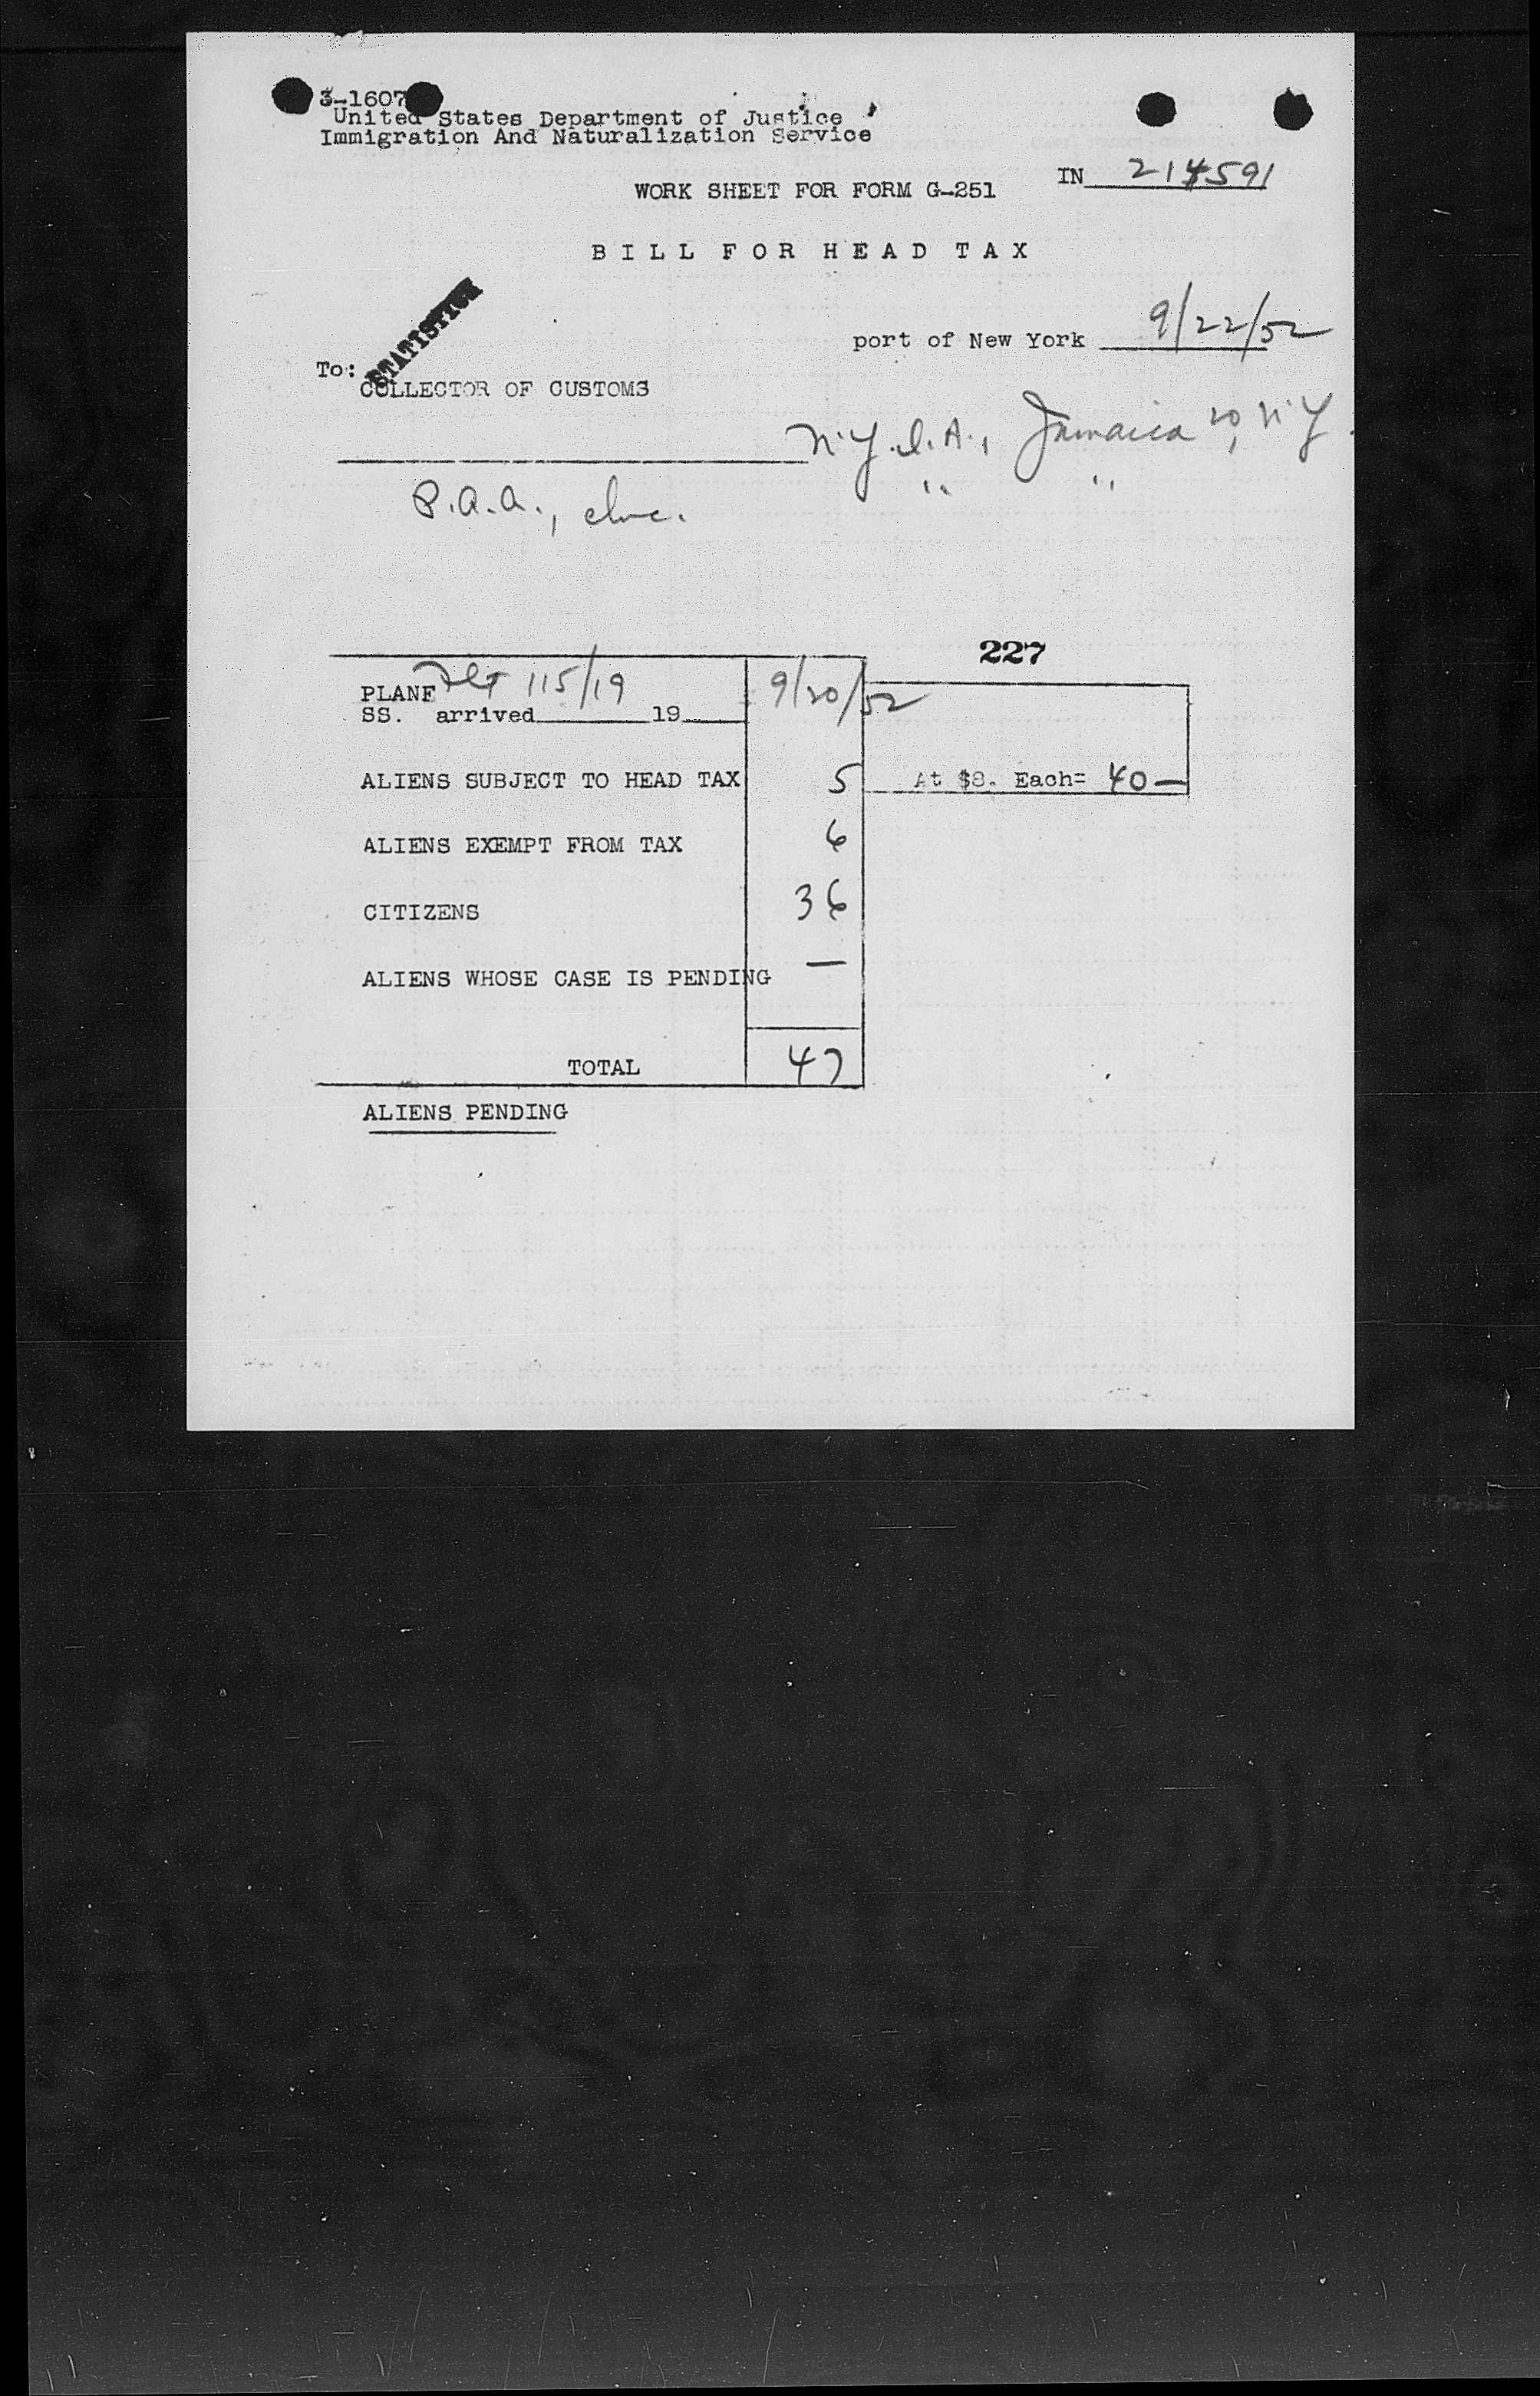 3-1607
United States Department of Justice
Immigration And Naturalization Service
IN 214591
WORK SHEET FOR FORM G-251
BILL FOR HEAD TAX
STATISTICS
port of New York 9/22/52
To:
COLLECTOR OF CUSTOMS
N.Y.I.A., Jamaica 20, N Y.
P.A.A., Inc. " "
227
PLANE Flt 115/19 9/20/52
SS. arrived 19
ALIENS SUBJECT TO HEAD TAX 5 At $8. Each= 40 —
ALIENS EXEMPT FROM TAX 6
CITIZENS 36
ALIENS WHOSE CASE IS PENDING —
TOTAL 47
ALIENS PENDING